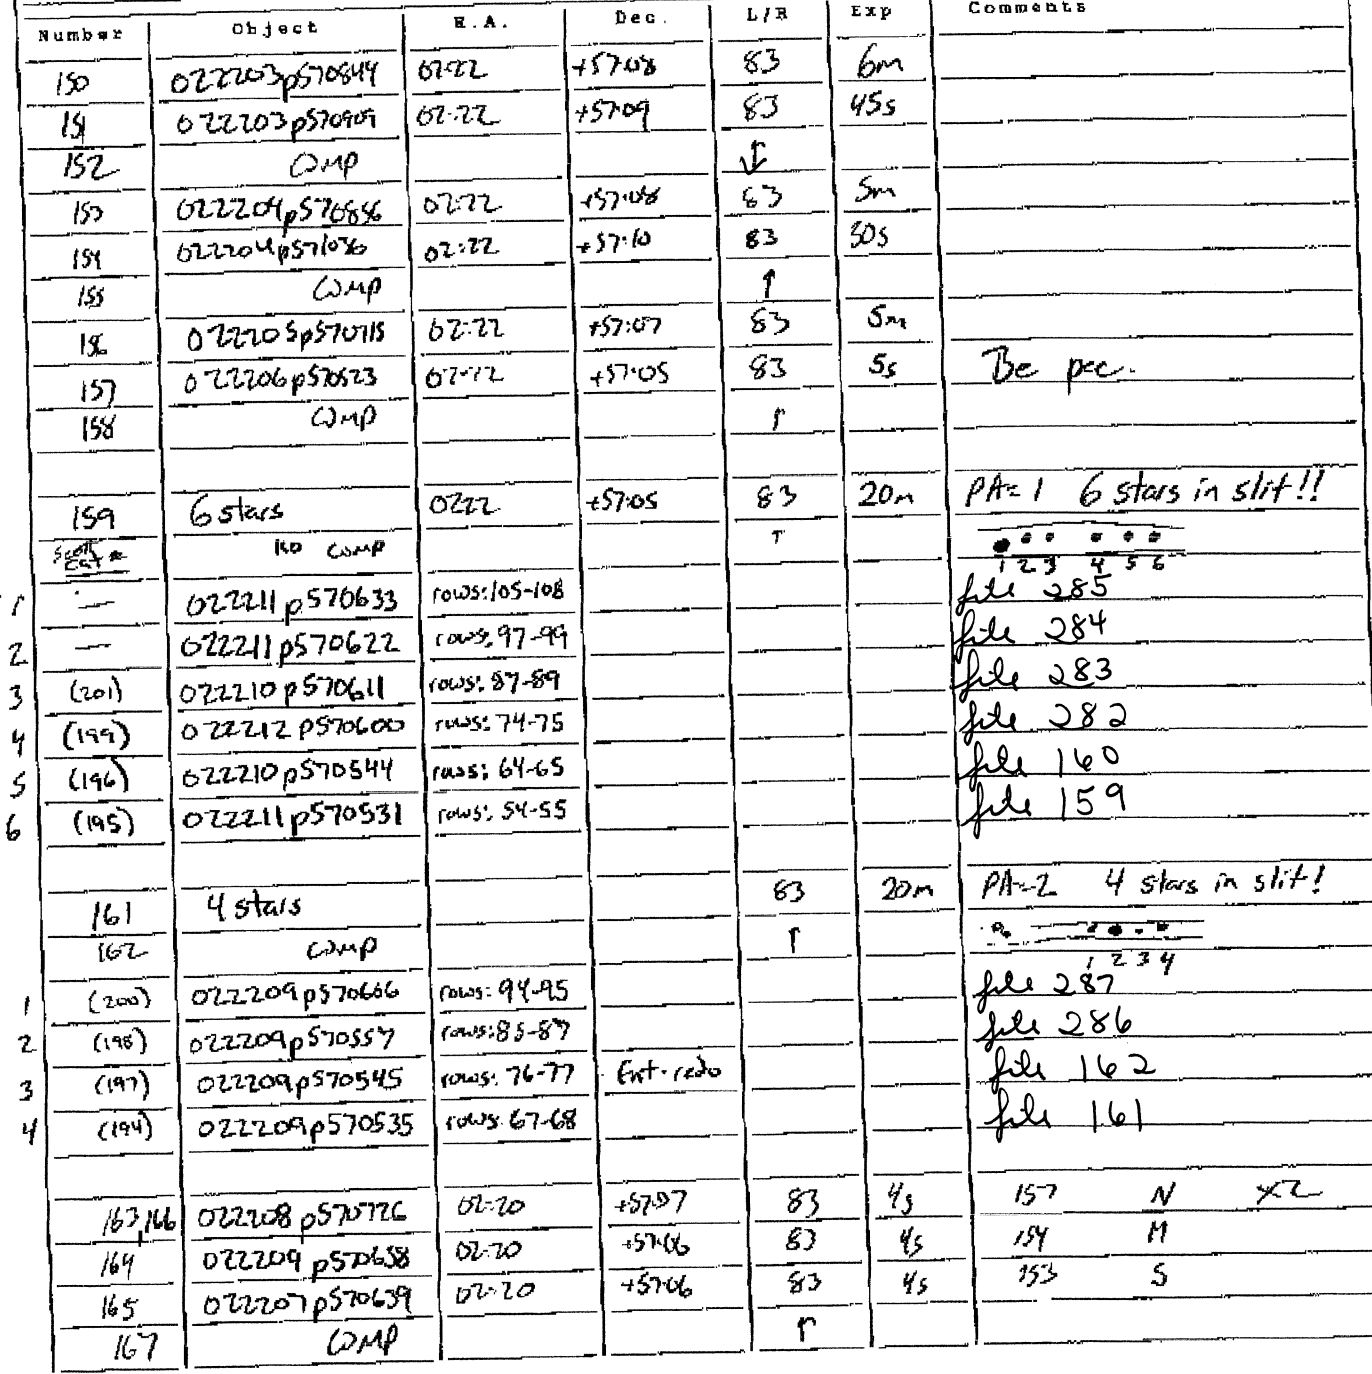 Number Object R.A. Dec. L/R Exp Comments
150 022203p570844 02:22 +57:08 83 6m
151 022203p570909 02:22 +57:09 83 45s
152 COMP ↑↓
153 022204p570856 02:22 +57:08 83 5m
154 022204p571036 02:22 +57:10 83 30s
155 COMP ↑
156 022205p570715 02:22 +57:07 83 5m
157 022206p570523 02:22 +57:05 83 5s Be pec.
158 COMP ↑
159 6 stars 0222 +57:05 83 20m PA=1 6 stars in slit!!
Cat # no comp ↑
1 2 3 4 5 6
1 — 022211p570633 rows:105-108 file 285
2 — 022211p570622 rows:97-99 file 284
3 (201) 022210p570611 rows:87-89 file 283
4 (199) 022212p570600 rows:74-75 file 282
5 (196) 022210p570544 rows:64-65 file 160
6 (195) 022211p570531 rows:54-55 file 159
161 4 stars 83 20m PA=2 4 stars in slit!
162 COMP ↑
1 2 3 4
1 (200) 022209p570606 rows:94-95 file 287
2 (198) 022209p570557 rows:85-87 file 286
3 (197) 022209p570545 rows:76-77 Ext-redo file 162
4 (194) 022209p570535 rows:67-68 file 161
163,166 022208p570726 02:20 +57:07 83 4s 157 N x2
164 022209p570638 02:20 +57:06 83 4s 154 M
165 022207p570639 02:20 +57:06 83 4s 153 S
167 COMP ↑